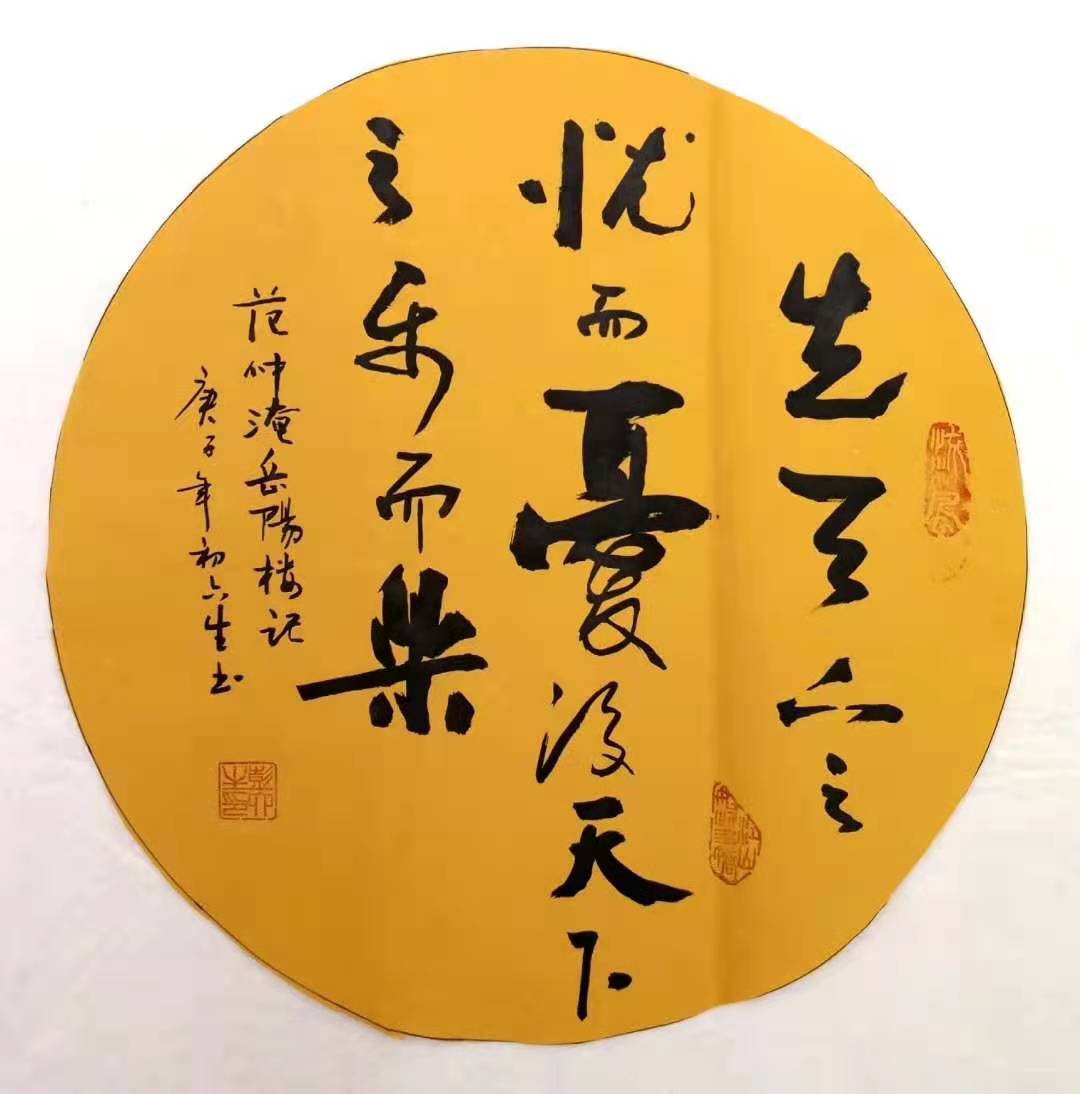 先天下之
忧而憂後天下
之乐而樂
范仲淹岳陽楼记
庚子年初六生书